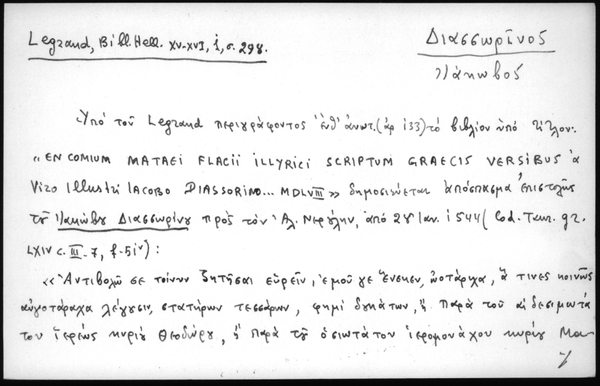 Legrand, Bibl. Hell. XV-XVI, i, σ. 298.
Διασσωρῖνος
Ἰάκωβος
Ὑπό τοῦ Legrand περιγράφοντος ἔνθ' ἀνωτ. (ἀρ 133) τό βιβλίον ὑπό τίτλον.
« ENCOMIUM MATAEI FLACII ILLYRICI SCRIPTUM GRAECIS VERSIBUS a
Viro Illustri IACOBO DIASSORINO... MDLVIII » δημοσιεύεται ἀπόσπασμα ἐπιστολῆς
τοῦ Ἰακώβου Διασσωρίνου πρός τόν Ἀλ. Νερούλην, ἀπό 28 Ιαν. 1544 (Cod. Taur. gr.
LXIV c. III-7, f. 51v) :
« Ἀντιβολῶ σε τοίνυν ζητῆσαι εὑρεῖν, ἐμοῦ γε ἕνεκεν, ὠοτάριχα, ἅ τινες κοινῶς
αὐγοτάραχα λέγουσιν, στατήρων τεσσάρων, φημί δουκάτων, ἤ παρά τοῦ αἰδεσιμωτά
του ἱερέως κυρίου Θεοδώρου, ἤ παρά τοῦ ὁσιωτάτου ἱερομονάχου κυρίου Μα